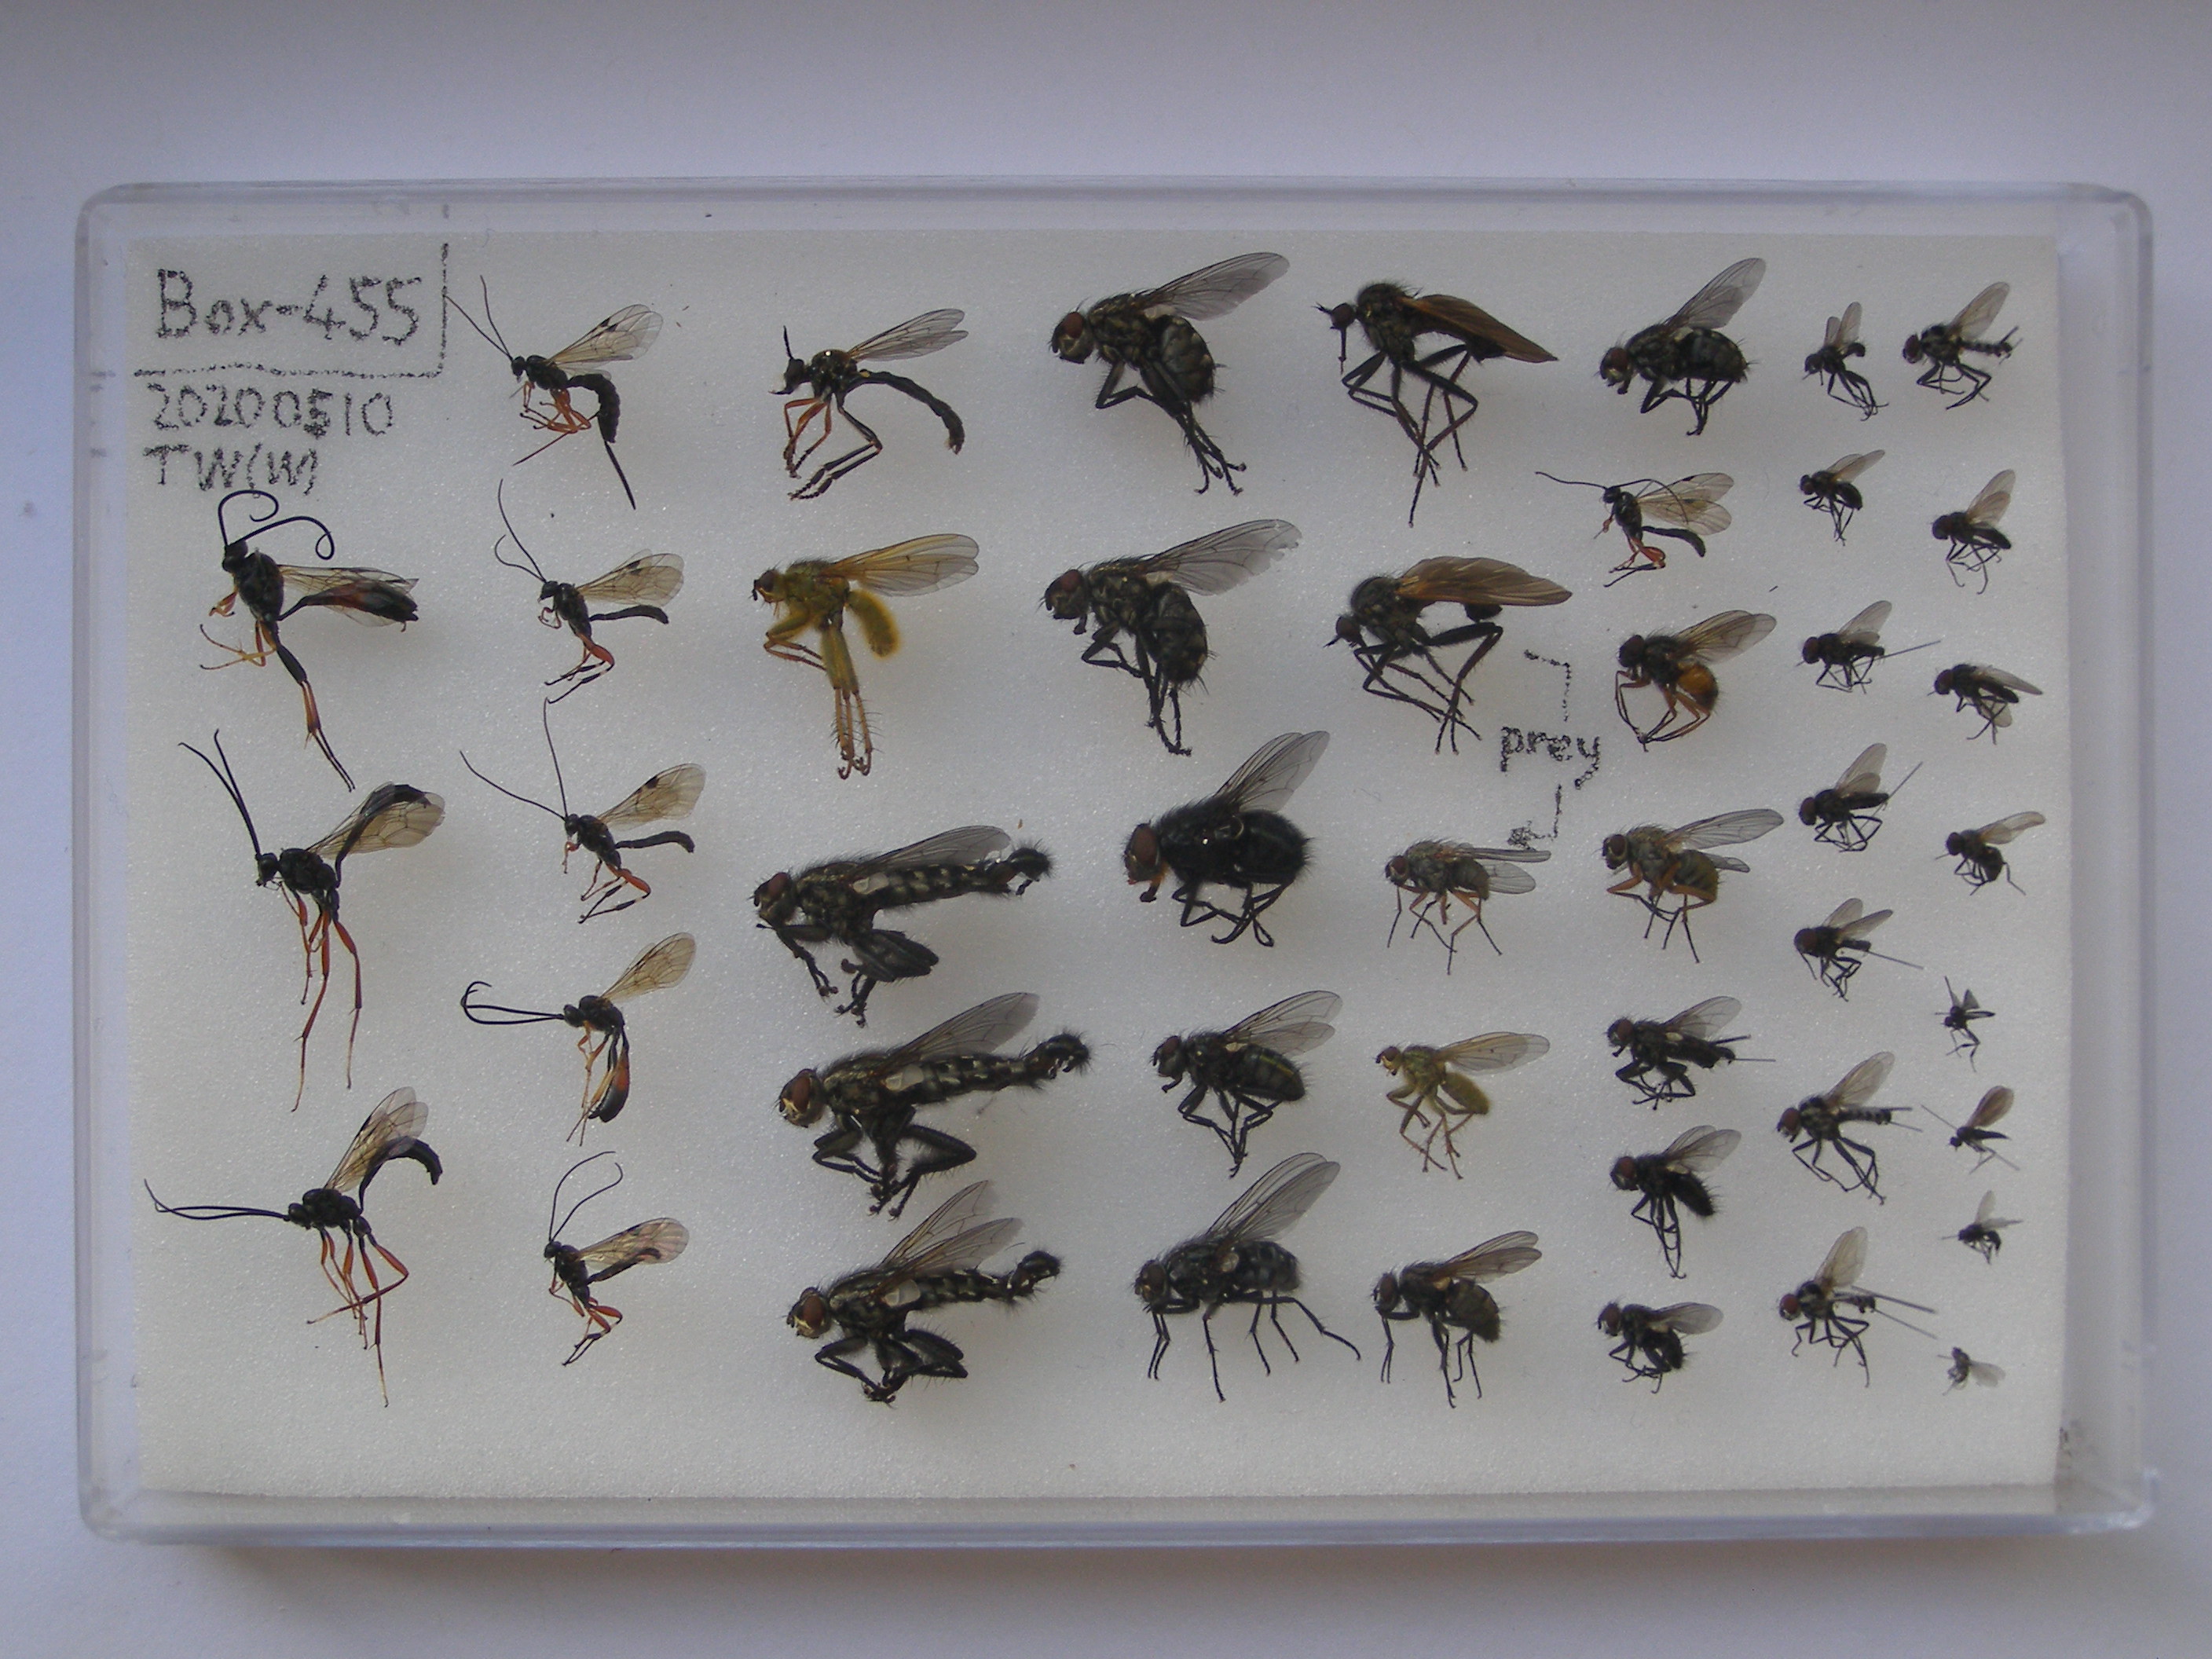 Box-455
20200510
TW(W)
prey